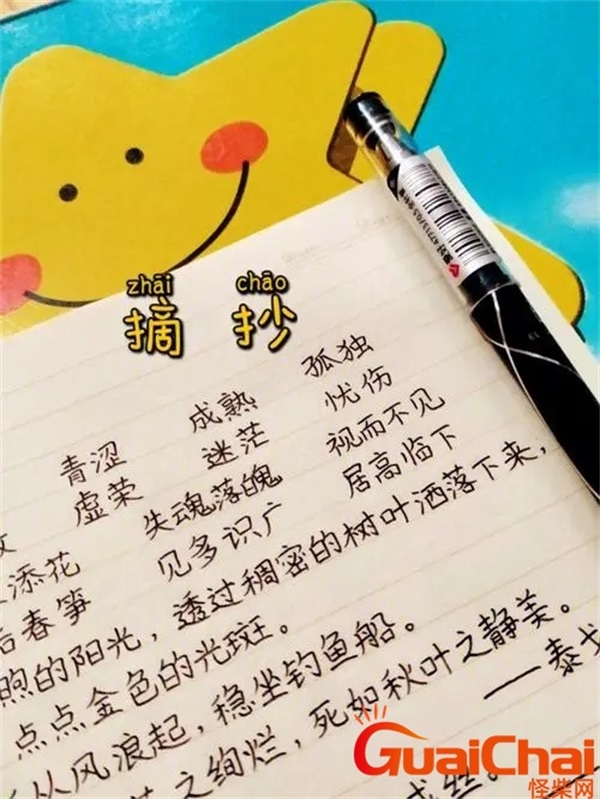 zhāi chāo
摘 抄
青涩 成熟 孤独
虚荣 迷茫 忧伤
失魂落魄 视而不见
添花 见多识广 居高临下
后春笋
煦的阳光，透过稠密的树叶洒落下来，
点点金色的光斑。
从风浪起，稳坐钓鱼船。
之绚烂，死如秋叶之静美。
——泰戈
丝。
GuaiChai
怪柴网